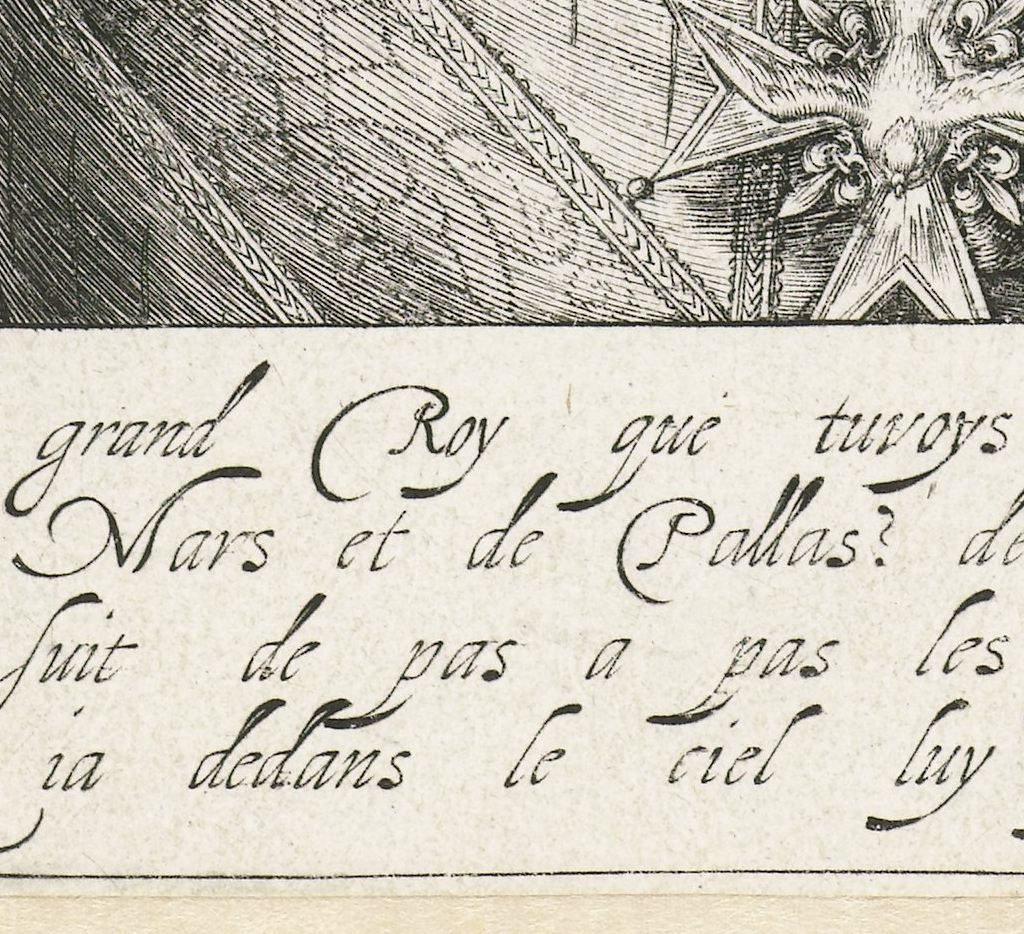 grand Roy que tuvoys
Mars et de Pallas? de
suit de pas a pas les
ia dedans le ciel luy